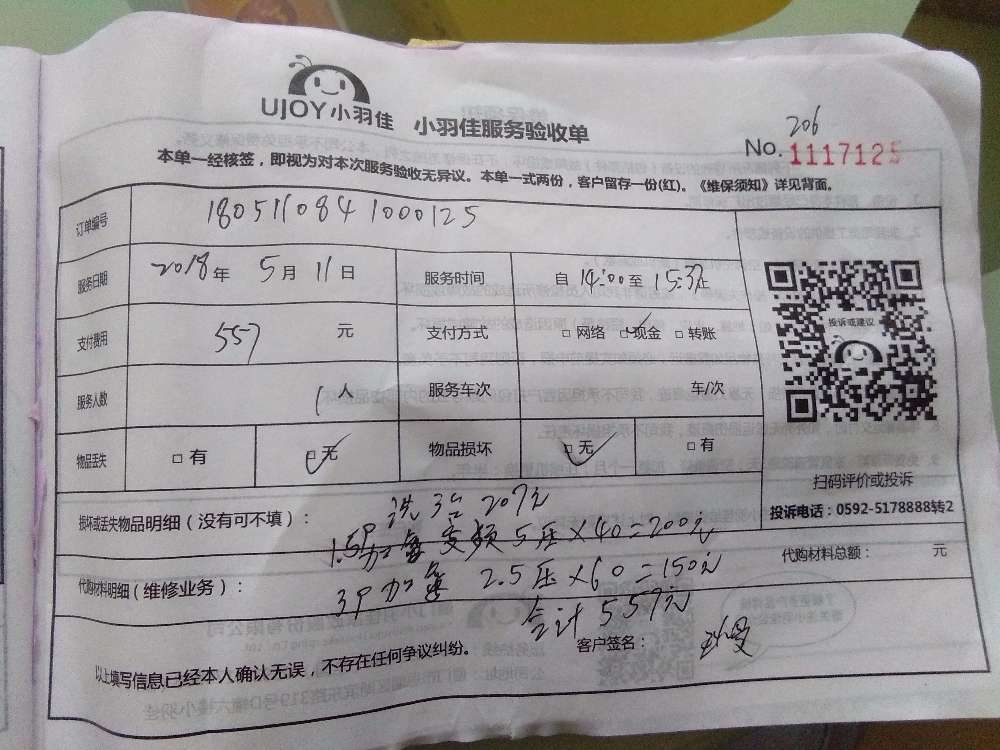 UJOY小羽佳 小羽佳服务验收单
206
No. 1117125
本单一经核签，即视为对本次服务验收无异议。本单一式两份，客户留存一份(红)。《维保须知》详见背面。
订单编号 1805110841000125
服务日期 2018年 5月 11日 服务时间 自14:00至15:37止
支付费用 557 元 支付方式 □网络 □现金 □转账
投诉或建议
服务人数 1人 服务车次 车/次
物品丢失 □有 □无 物品损坏 □无 □有
扫码评价或投诉
投诉电话：0592-5178888转2
损坏或丢失物品明细（没有可不填）： 洗3台 207元
1.5P加氟 变频 5压×40=200元
代购材料明细（维修业务）： 3P加氟 2.5压×60=150元 代购材料总额： 元
合计557元
以上填写信息已经本人确认无误，不存在任何争议纠纷。 客户签名：